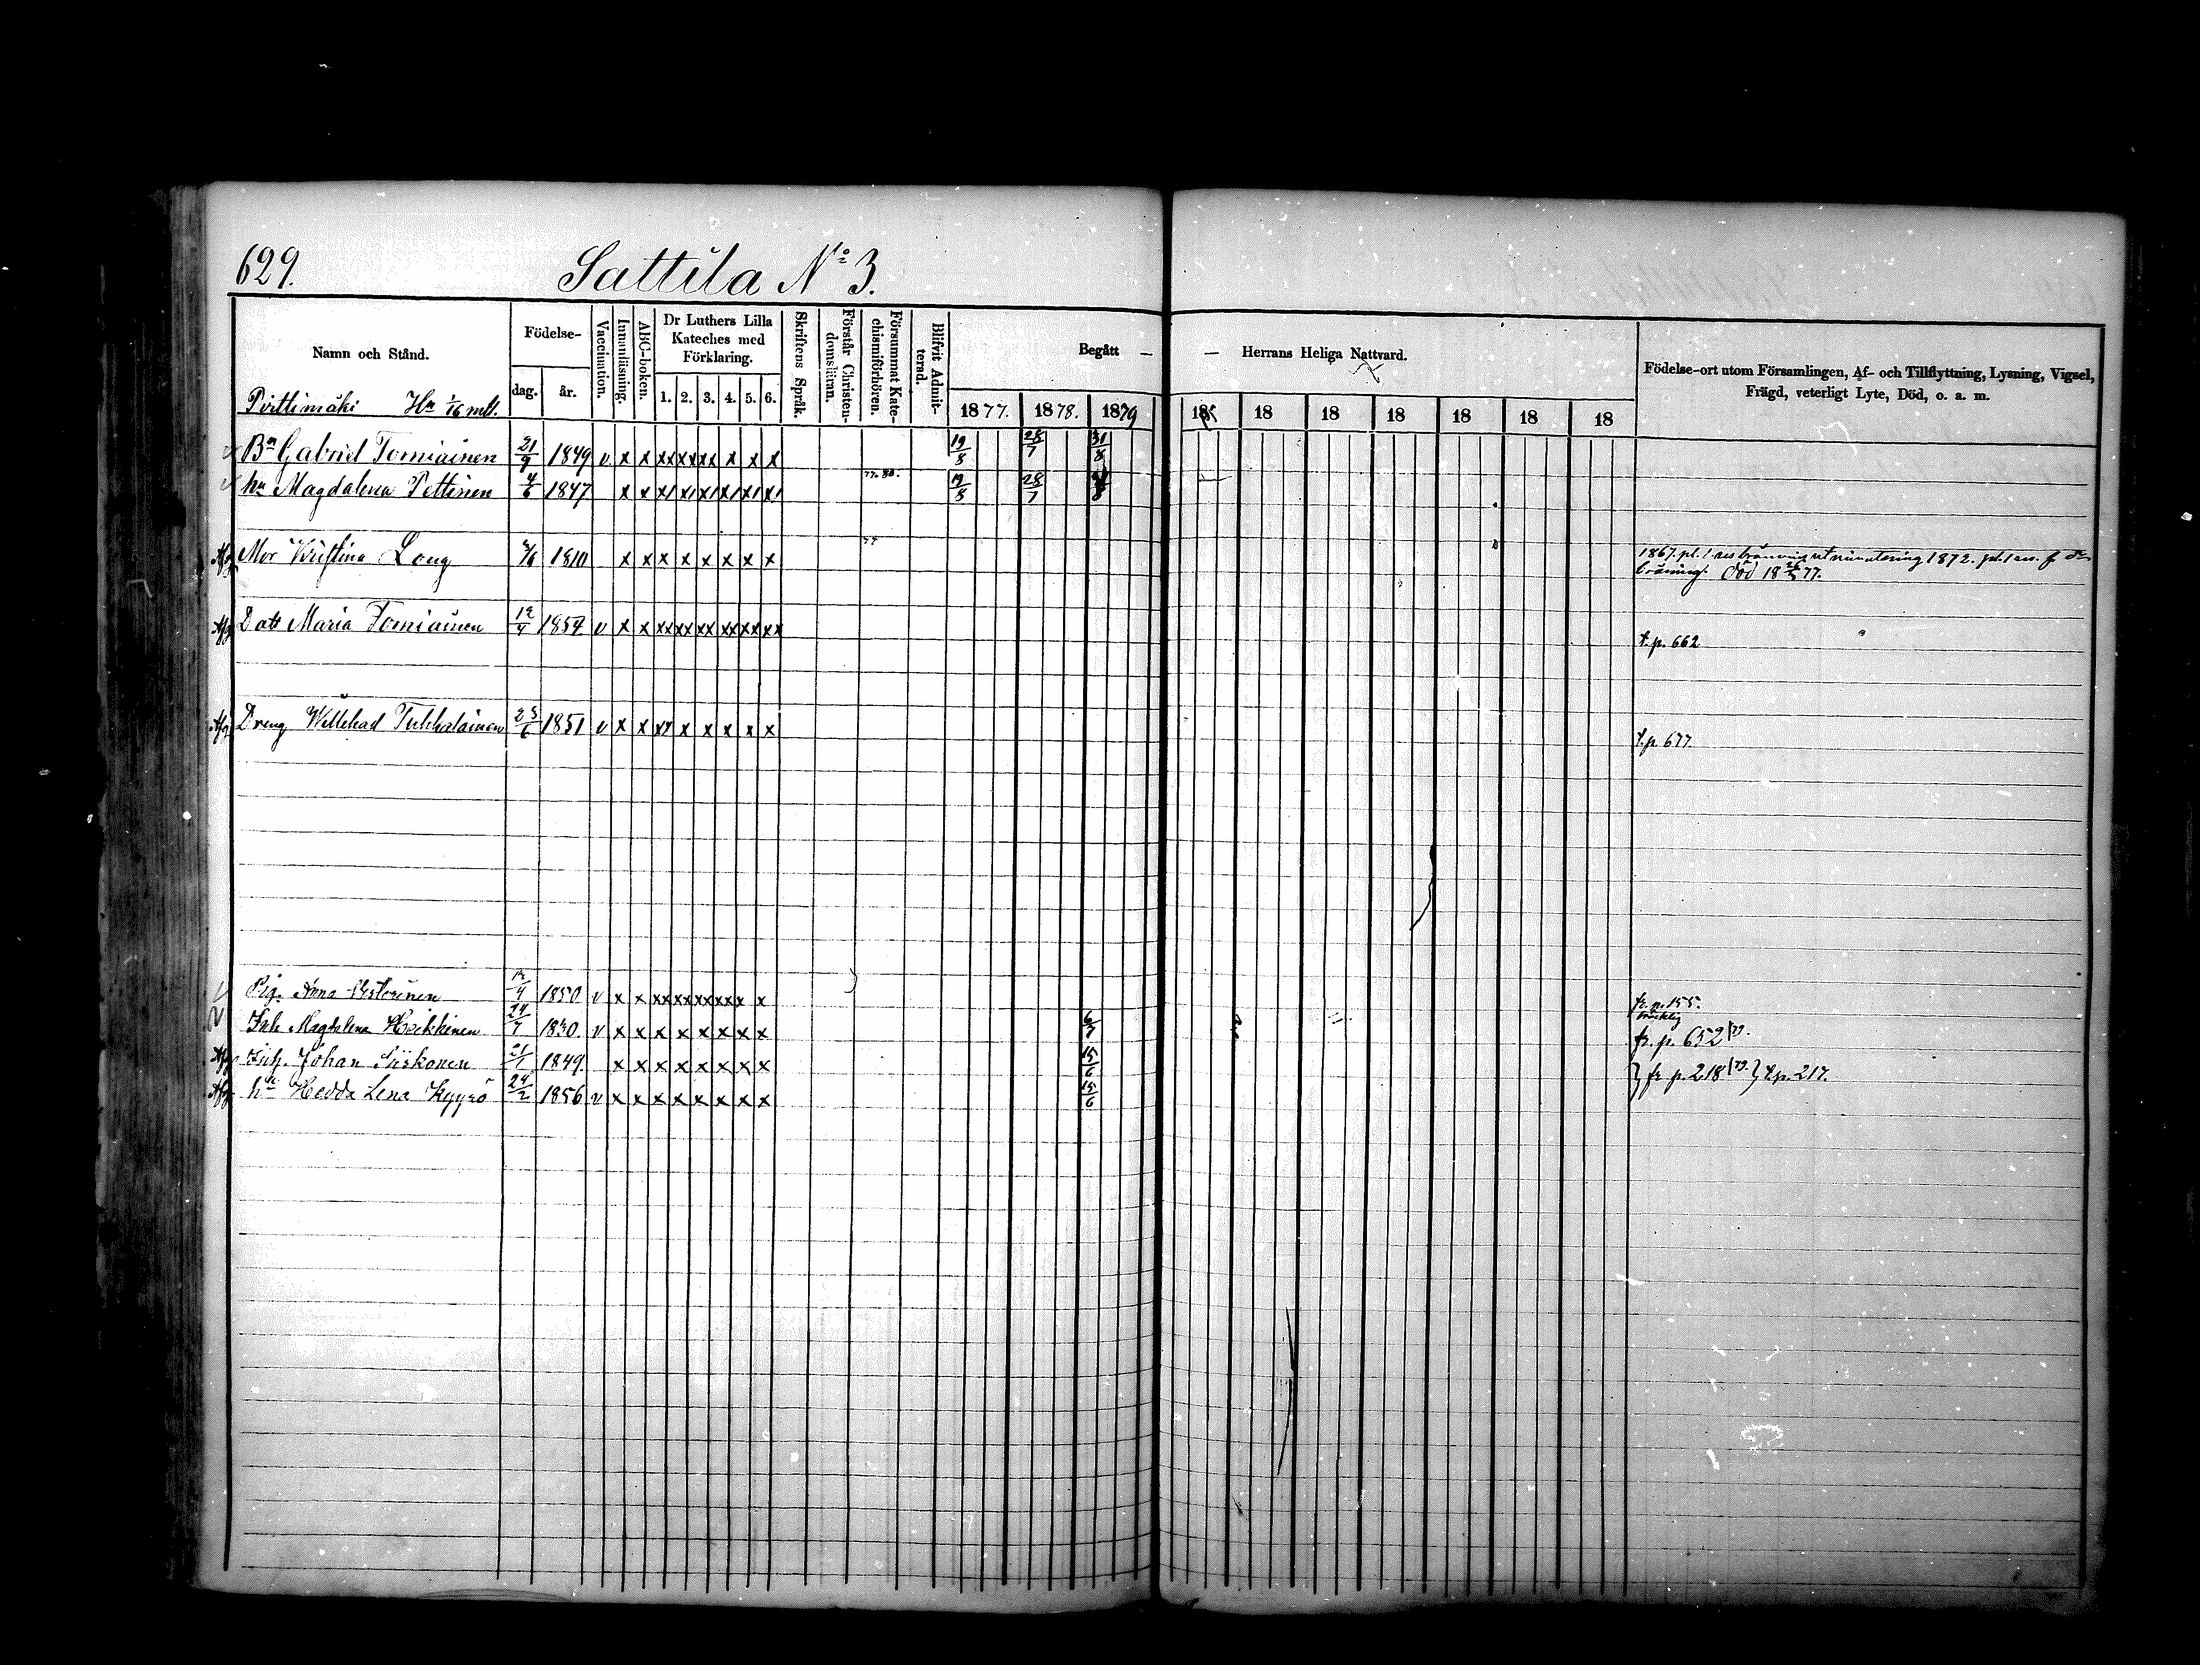 629. Sattila No 3.
Namn och Stånd. Födelse- dag. år. Vaccination. Innanläsning. ABC-boken. Dr Luthers Lilla Kateches med Förklaring. 1. 2. 3. 4. 5. 6. Skriftens Språk. Förstår Christendomsläran. Försummat Katechismiförhören. Blifvit Admitterad. Begått — — Herrans Heliga Nattvard. Födelse-ort utom Församlingen, Af- och Tillflyttning, Lysning, Vigsel, Frägd, veterligt Lyte, Död, o. a. m.
Pirttimäki Hn 1/16 mtl. 1877. 1878. 1879 18 18 18 18 18 18 18
Bn Gabriel Torniainen 21/9 1849 v x x xx xx xx x x x 19/8 28/7 31/8
hu Magdalena Pettinen 4/6 1847 x x x/ x/ x/ x/ x/ x/ 77. 80. 19/8 28/7
Afg Mor Kristina Long 1810 x x x x x x x x 77 1867. pl. 1872. död 18 77.
Afg Dotr Maria Torniainen 19/4 1854 v x x xx xx xx xx xx xx t. p. 662
Afg Dreng Willehad Tukkalainen 25/6 1851 v x x xx x x x x x t. p 677
Pig. Anna 1850 v x x xx xx xx xx x x fr. p. 155.
Inh Magdalena Heikkinen 24/7 1830. v x x x x x x x x 6/7 bräcklig fr. p. 652/79.
Afg Inh. Johan Siiskonen 21/1 1849 x x x x x x x x 15/6
Afg hu Hedda Lena Kyyrö 24/2 1856 v x x x x x x x x 15/6 } fr p. 218/79. } t. p. 217.